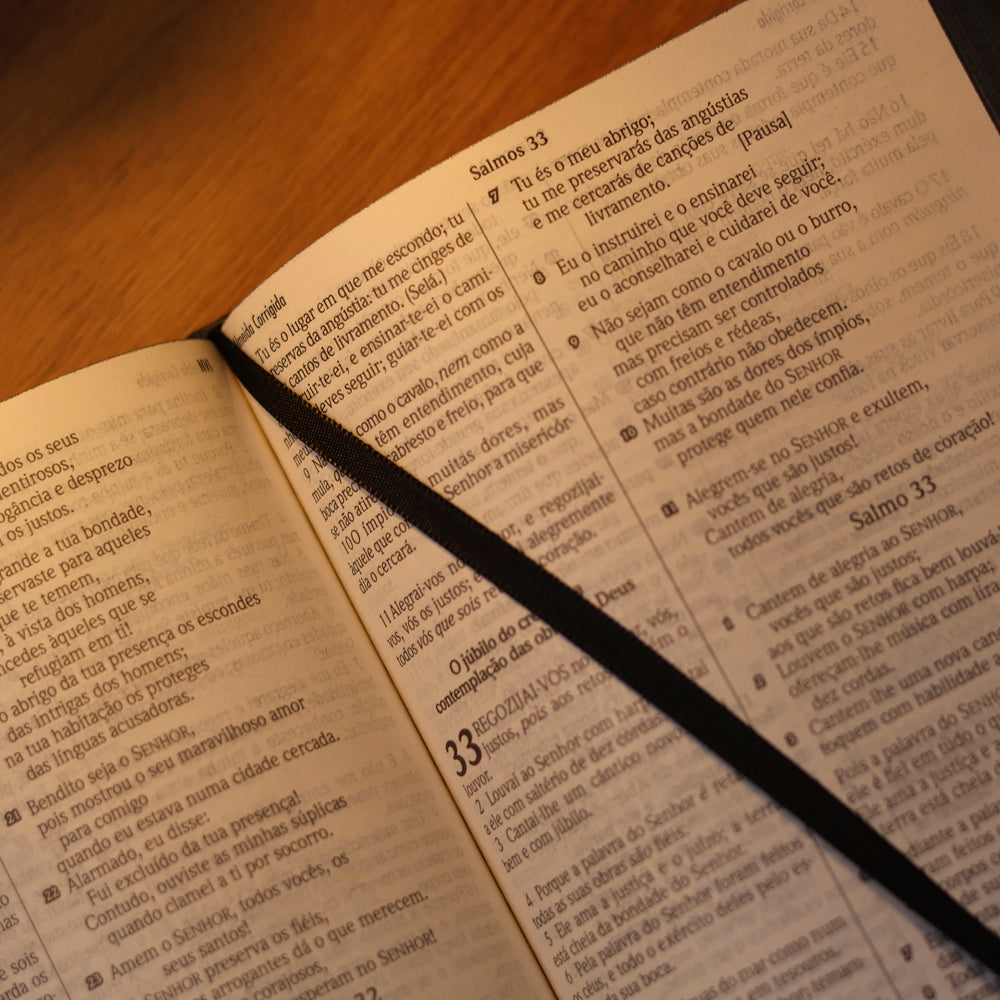 NVI
dos os seus
entirosos,
ogância e desprezo
os justos.
grande a tua bondade,
servaste para aqueles
que te temem,
à vista dos homens,
ncedes àqueles que se
refugiam em ti!
o abrigo da tua presença os escondes
das intrigas dos homens;
na tua habitação os proteges
das línguas acusadoras.
21 Bendito seja o SENHOR,
pois mostrou o seu maravilhoso amor
para comigo
quando eu estava numa cidade cercada.
22 Alarmado, eu disse:
Fui excluído da tua presença!
Contudo, ouviste as minhas súplicas
quando clamei a ti por socorro.
23 Amem o SENHOR, todos vocês, os
seus santos!
SENHOR preserva os fiéis,
arrogantes dá o que merecem.
corajosos,
esperam no SENHOR!
32
Salmos 33
Almeida Corrigida
Tu és o lugar em que me escondo; tu
reservas da angústia: tu me cinges de
cantos de livramento. (Selá.)
uir-te-ei, e ensinar-te-ei o cami-
deves seguir; guiar-te-ei com os
como o cavalo, nem como a
mula, têm entendimento, cuja
boca cabresto e freio, para que
se não
10 O muitas dores, mas
àquele que Senhor a misericór-
dia o cercará.
11 Alegrai-vos no or, e regozijai-
vos, vós os justos; e alegremente
todos vós que sois coração.
O júbilo do Deus
contemplação das
33 REGOZIJAI-VOS no vós,
justos, pois aos retos o
louvor.
2 Louvai ao Senhor com harpa
a ele com saltério de dez cordas.
3 Cantai-lhe um cântico novo
bem e com júbilo.
4 Porque a palavra do Senhor é reta
todas as suas obras são fiéis:
5 Ele ama a justiça e o juízo; a terra
está cheia da bondade do Senhor.
6 Pela palavra do Senhor foram feitos
os céus, e todo o exército deles pelo es-
da sua boca.
as do mar como num
em tesouros.
7 Tu és o meu abrigo;
tu me preservarás das angústias
e me cercarás de canções de
livramento. [Pausa]
8 Eu o instruirei e o ensinarei
no caminho que você deve seguir;
eu o aconselharei e cuidarei de você.
9 Não sejam como o cavalo ou o burro,
que não têm entendimento
mas precisam ser controlados
com freios e rédeas,
caso contrário não obedecem.
10 Muitas são as dores dos ímpios,
mas a bondade do SENHOR
protege quem nele confia.
11 Alegrem-se no SENHOR e exultem,
vocês que são justos!
Cantem de alegria,
todos vocês que são retos de coração!
Salmo 33
1 Cantem de alegria ao SENHOR,
vocês que são justos;
aos que são retos fica bem louvá
2 Louvem o SENHOR com harpa;
ofereçam-lhe música com lira
dez cordas.
3 Cantem-lhe uma nova can
toquem com habilidade
Pois a palavra do SENHOR
ele é fiel em tudo o
Ele ama a justiça e
terra está cheia
diante a pala
feitos
corpos
7